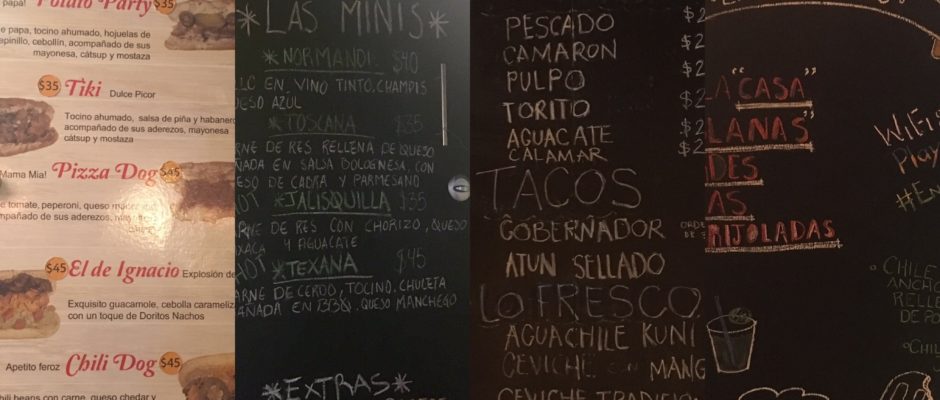 papa! Potato Party $35
e papa, tocino ahumado, hojuelas de
apinillo, cebollín, acompañado de sus
mayonesa, cátsup y mostaza
$35 Tiki Dulce Picor
Tocino ahumado, salsa de piña y habanero
acompañado de sus aderezos, mayonesa
cátsup y mostaza
Mama Mia! Pizza Dog $45
e tomate, peperoni, queso
mpañado de sus aderezos,
$45 El de Ignacio Explosión de
Exquisito guacamole, cebolla carameliz
con un toque de Doritos Nachos
Apetito feroz Chili Dog $45
hili beans con carne, queso chedar y
*LAS MINIS*
*NORMANDI. $40
LC EN VINO TINTO, CHAMPIS
ESO AZUL
*TOSCANA $35
RNE DE RES RELLENA DE QUESO
ÑADA EN SALSA BOLOGNESA, CON
ESO DE CABRA Y PARMESANO
*JALISQUILLA $35
RNE DE RES CON CHORIZO, QUESO
XACA Y AGUACATE
*TEXANA $45
ARNE DE CERDO, TOCINO, CHULETA
AÑADA EN BBQ, QUESO MANCHEGO
*EXTRAS*
PESCADO $2
CAMARON $2
PULPO $2
TORITO $2
AGUACATE $2
CALAMAR $2
TACOS
GOBERNADOR ORDE
DE
ATUN SELLADO
LO FRESCO
AGUACHILE KUNI
CEVICHE CON MANG
CEVICHE TRADICIO
LA "CASA"
LANAS"
DES
AS
RIJOLADAS
WiFi
Play
#En
CHILE
ANCHO
RELLE
DE PO
CHIL